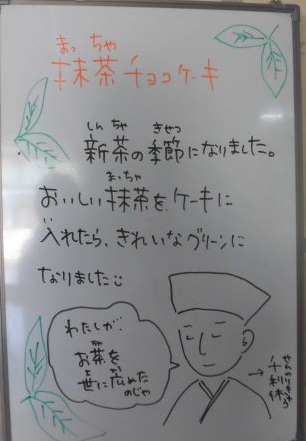 まっちゃ
抹茶チョコケーキ
しんちゃ きせつ
新茶の季節になりました。
まっちゃ
おいしい抹茶をケーキに
入れたら、きれいなグリーンに
なりました
わたしが
お茶を
世に広めた
のじゃ
せんのりきゅう
→千利休